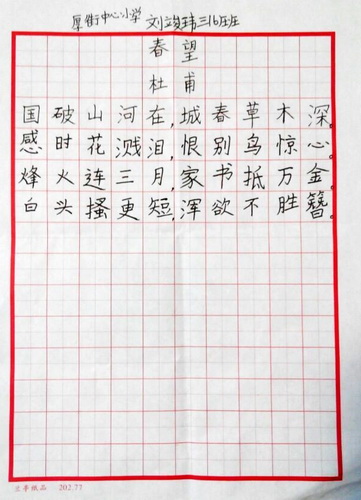 厚街中心小学 刘竣玮三16班
春望
杜甫
国破山河在，城春草木深。
感时花溅泪，恨别鸟惊心。
烽火连三月，家书抵万金。
白头搔更短，浑欲不胜簪。
兰亭纸品 202.77